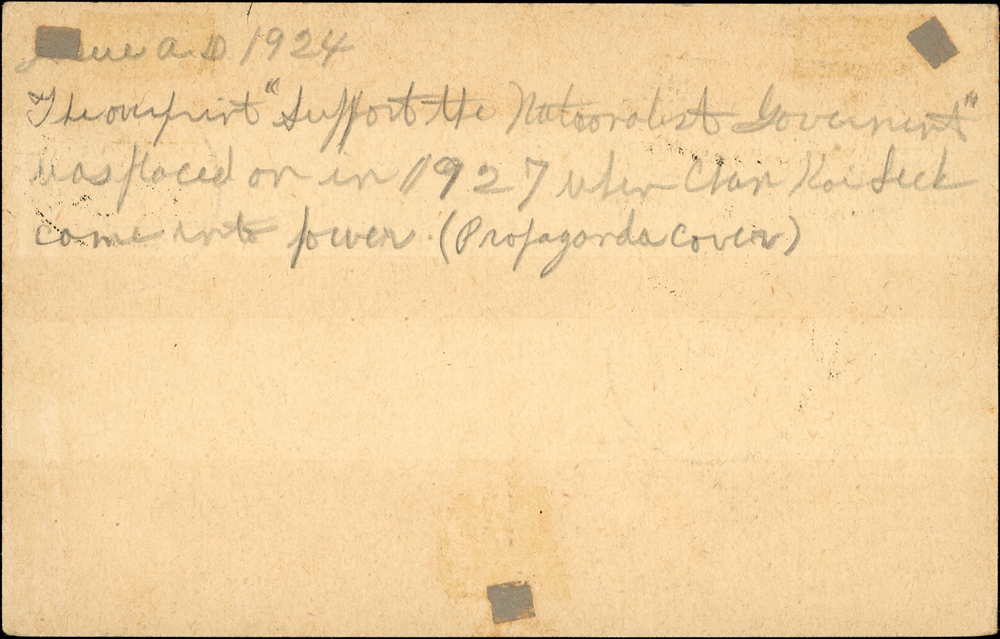 A.D 1924
The overprint "Support the Nationalist Government"
was placed on in 1927 when Chan Kai Seck
came into power. (Propaganda cover)